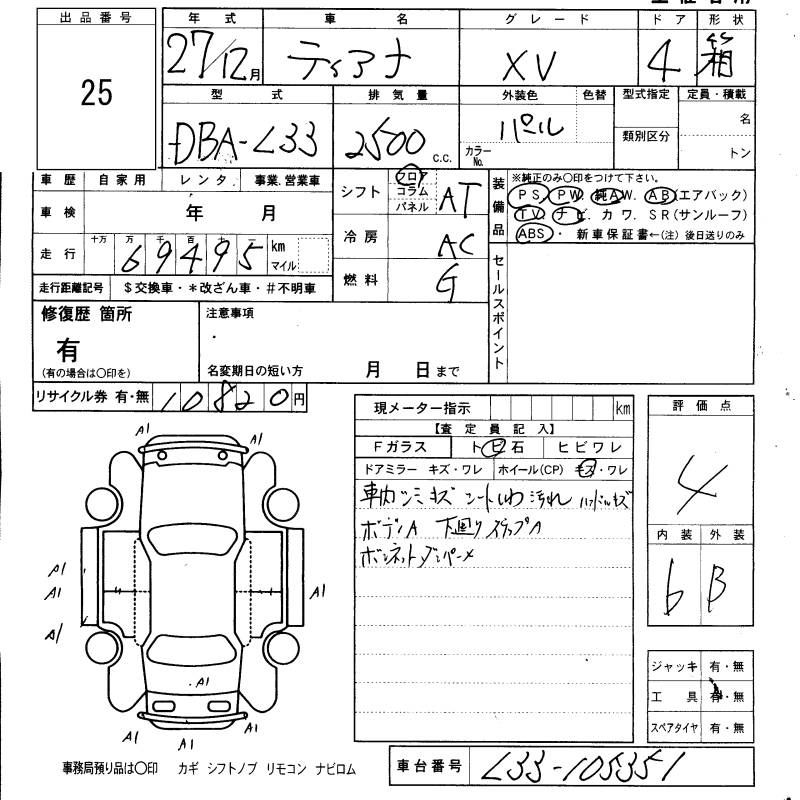 出品番号 25
年式 27/12月
車名 ティアナ
グレード XV
ドア 4
形状 箱
型式 DBA-L33
排気量 2500 c.c.
外装色 パール
色替
カラーNo.
型式指定
類別区分
定員・積載
名
トン
車歴 自家用 レンタ 事業.営業車
車検 年 月
走行 十万 万 千 百 十 一 69495 km マイル
走行距離記号 $交換車・*改ざん車・#不明車
シフト フロア コラム パネル AT
冷房 AC
燃料 G
装備品 ※純正のみ〇印をつけて下さい。
PS. PW. 純AW. AB(エアバック)
TV. ナビ. カワ. SR(サンルーフ)
ABS・ 新車保証書←(注) 後日送りのみ
セールスポイント
修復歴 箇所
有
(有の場合は〇印を)
注意事項
名変期日の短い方 月 日まで
リサイクル券 有・無 10820円
現メーター指示 km
【査定員記入】
Fガラス トビ石 ヒビワレ
ドアミラー キズ・ワレ ホイール(CP) キズ・ワレ
車内ツミキズ シートしわ 汚れ ハンドルキズ
ボディA 下廻りスラップA
ボンネットダンパーメ
評価点
4
内装 外装
6 B
A1 A1
A1 A1
A1
A1
A1
A1 A1 A1
ジャッキ 有・無
工具 有・無
スペアタイヤ 有・無
事務局預り品は〇印 カギ シフトノブ リモコン ナビロム
車台番号 L33-105351